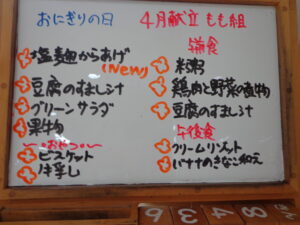 おにぎりの日
塩麹からあげ
(New)
豆腐のすまし汁
グリーンサラダ
果物
〜おやつ〜
ビスケット
牛乳
4月献立 もも組
補食
粥
鶏肉と野菜の煮物
豆腐のすまし汁
午後食
クリームリゾット
バナナのきなこ和え